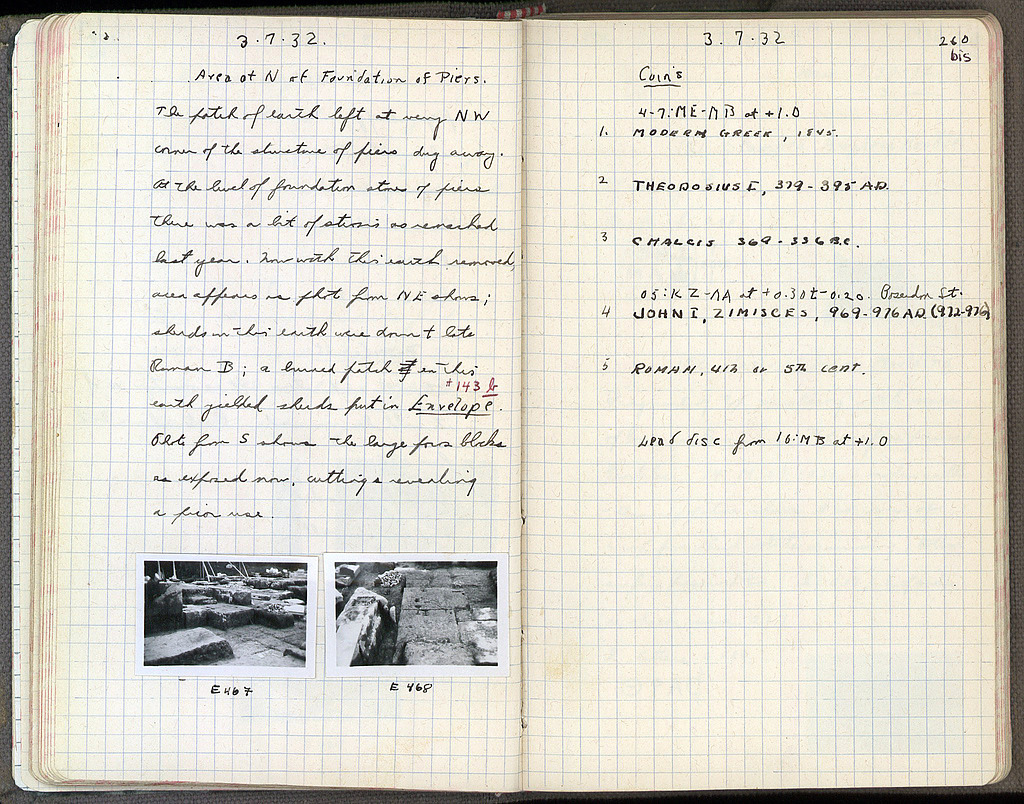 3.7.32.
Area at N of Foundation of Piers.
The patch of earth left at very NW
corner of the structure of piers dug away.
At the level of foundation stones of piers
there was a bit of stosis as remarked
last year. Now with this earth removed,
area appears as phot from NE shows;
sherds in this earth were down to late
Roman B; a burned patch in this
#143 b
earth yielded sherds put in Envelope.
Photo from S shows the large poros blocks
as exposed now, cuttings revealing
a prior use.
E 467
E 468
3.7.32
260
bis
Coins
4-7:ME-MB at +1.0
1. MODERN GREEK, 1845.
2 THEODOSIUS I, 379-395 A.D.
3 CHALCIS 369-336 B.C.
05:KZ-ΛA at +0.30 t -0.20. Poseidon St.
4 JOHN I, ZIMISCES, 969-976 AD (972-976)
5 ROMAN, 4th or 5th cent.
Lead disc from 16:MB at +1.0